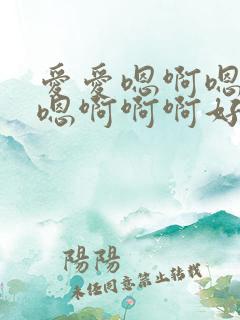 愛愛嗯啊嗯
嗯啊啊啊好
陽陽
未经同意禁止转载